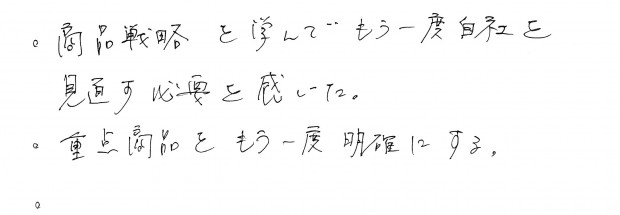 。商品戦略を学んでもう一度自社を
見直す必要を感いた。
。重点商品をもう一度明確にする。
。